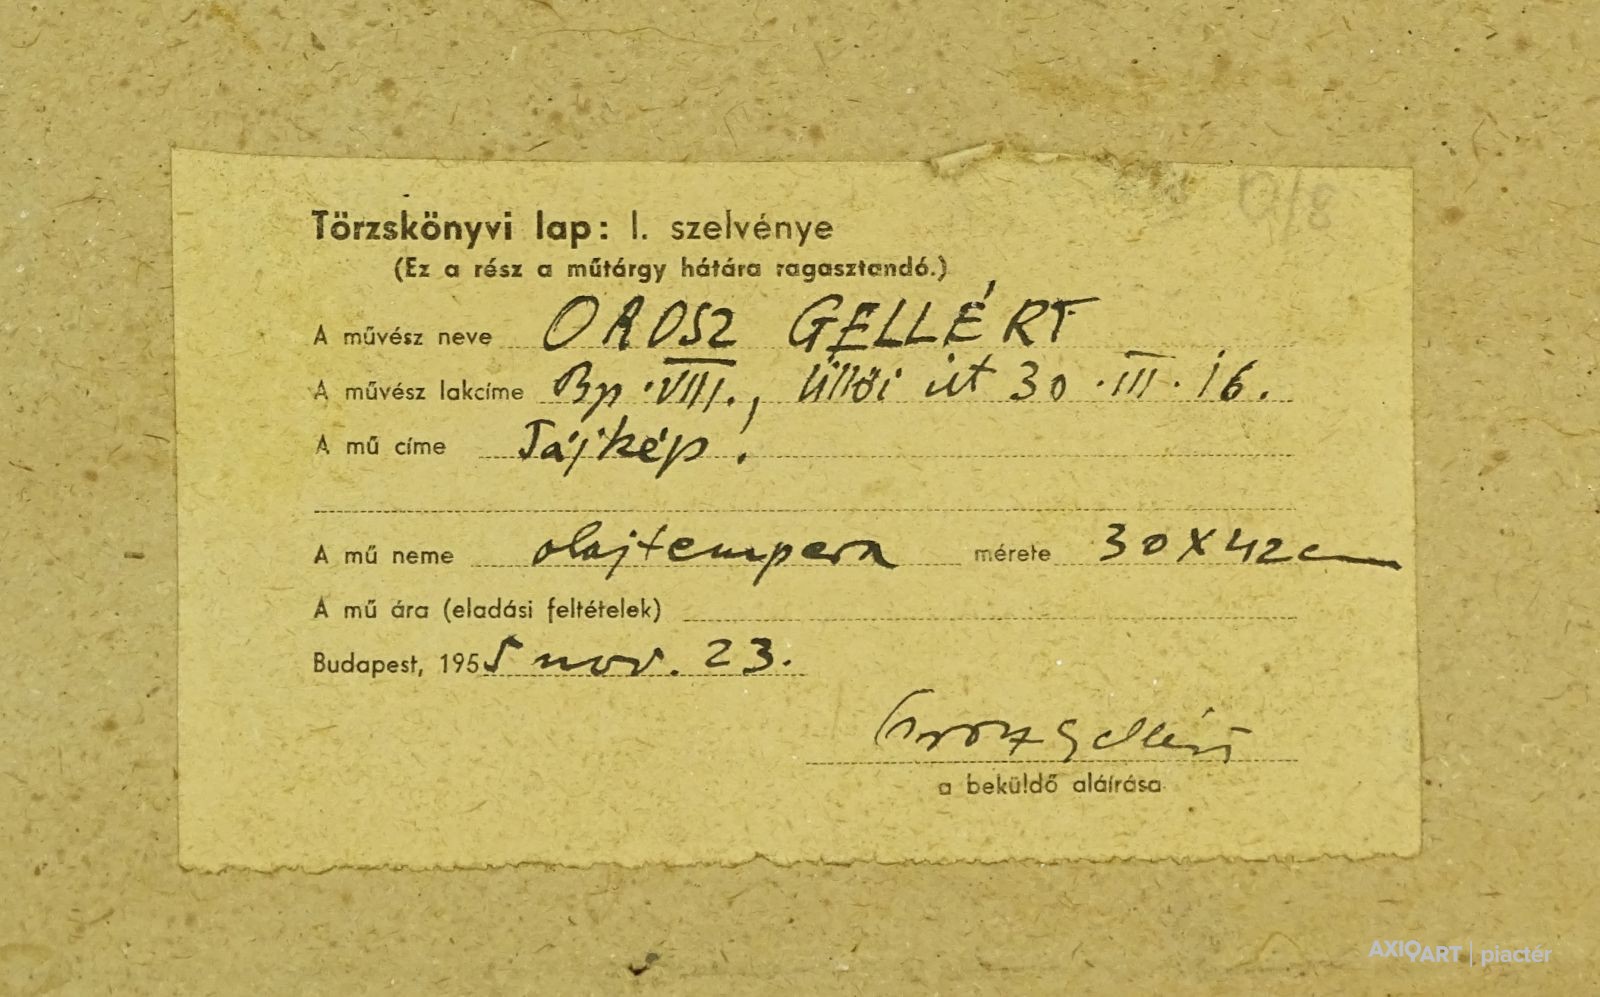 Törzskönyvi lap: I. szelvénye
(Ez a rész a műtárgy hátára ragasztandó.)
A művész neve OROSZ GELLÉRT
A művész lakcíme Bp. VIII., Üllői út 30. III. 16.
A mű címe Tájkép.
A mű neme olajtempera mérete 30 X 42 cm
A mű ára (eladási feltételek)
Budapest, 1955 nov. 23.
Orosz Gellért
a beküldő aláírása
AXIOART | piactér